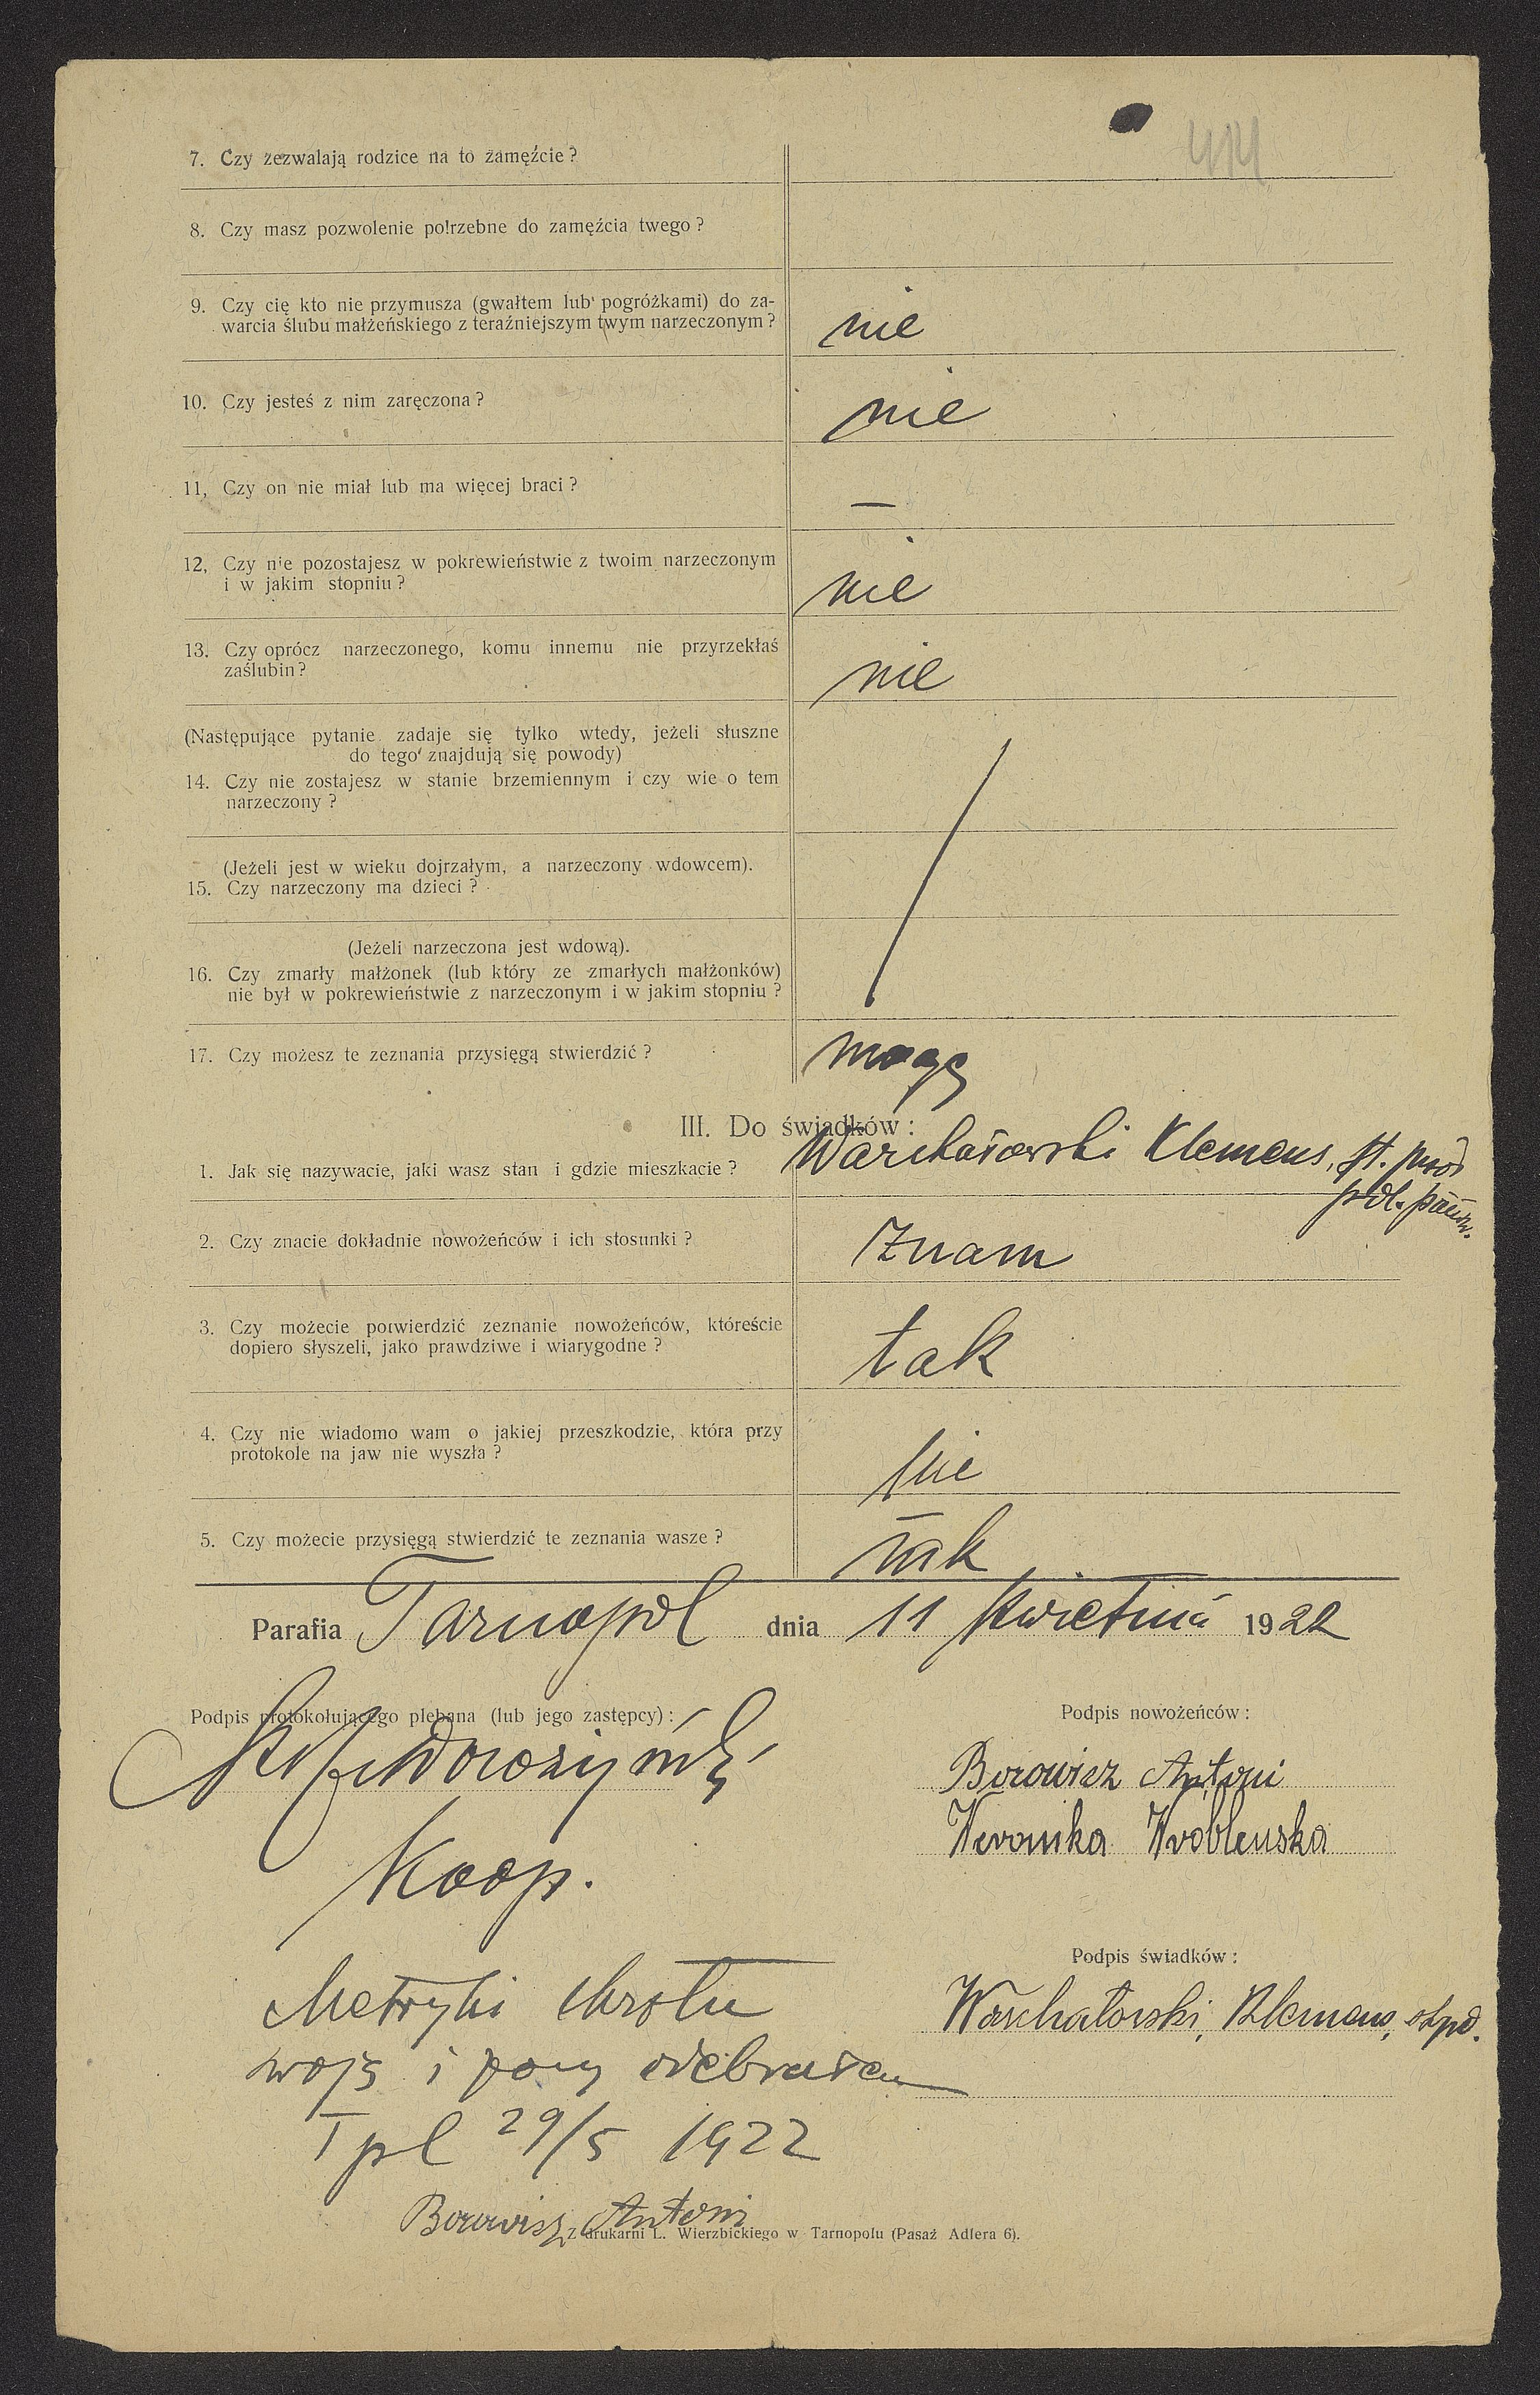 414
7. Czy zezwalają rodzice na to zamęźcie?
8. Czy masz pozwolenie potrzebne do zamęźcia twego?
9. Czy cię kto nie przymusza (gwałtem lub pogróżkami) do za-
warcia ślubu małżeńskiego z teraźniejszym twym narzeczonym?
nie
10. Czy jesteś z nim zaręczona?
nie
11, Czy on nie miał lub ma więcej braci?
—
12, Czy nie pozostajesz w pokrewieństwie z twoim narzeczonym
i w jakim stopniu?
nie
13. Czy oprócz narzeczonego, komu innemu nie przyrzekłaś
zaślubin?
nie
(Następujące pytanie zadaje się tylko wtedy, jeżeli słuszne
do tego znajdują się powody)
14. Czy nie zostajesz w stanie brzemiennym i czy wie o tem
narzeczony?
(Jeżeli jest w wieku dojrzałym, a narzeczony wdowcem).
15. Czy narzeczony ma dzieci?
(Jeżeli narzeczona jest wdową).
16. Czy zmarły małżonek (lub który ze zmarłych małżonków)
nie był w pokrewieństwie z narzeczonym i w jakim stopniu?
17. Czy możesz te zeznania przysięgą stwierdzić?
mogę
III. Do świadków:
1. Jak się nazywacie, jaki wasz stan i gdzie mieszkacie?
Warchałowski Klemens, st. przod
pol. państw.
2. Czy znacie dokładnie nowożeńców i ich stosunki?
Znam
3. Czy możecie potwierdzić zeznanie nowożeńców, któreście
dopiero słyszeli, jako prawdziwe i wiarygodne?
tak
4. Czy nie wiadomo wam o jakiej przeszkodzie, która przy
protokole na jaw nie wyszła?
nie
5. Czy możecie przysięgą stwierdzić te zeznania wasze?
tak
Parafia Tarnopol dnia 11 kwietnia 1922
Podpis protokołującego plebana (lub jego zastępcy):
Podpis nowożeńców:
Borowicz Antoni
Weronika Wroblewska
Koop.
Podpis świadków:
Warchałowski, Klemens, stpd.
Metryki chrztu
swoją i żony odebrałem
Tpl 29/5 1922
Borowicz Antoni
Z drukarni L. Wierzbickiego w Tarnopolu (Pasaż Adlera 6).